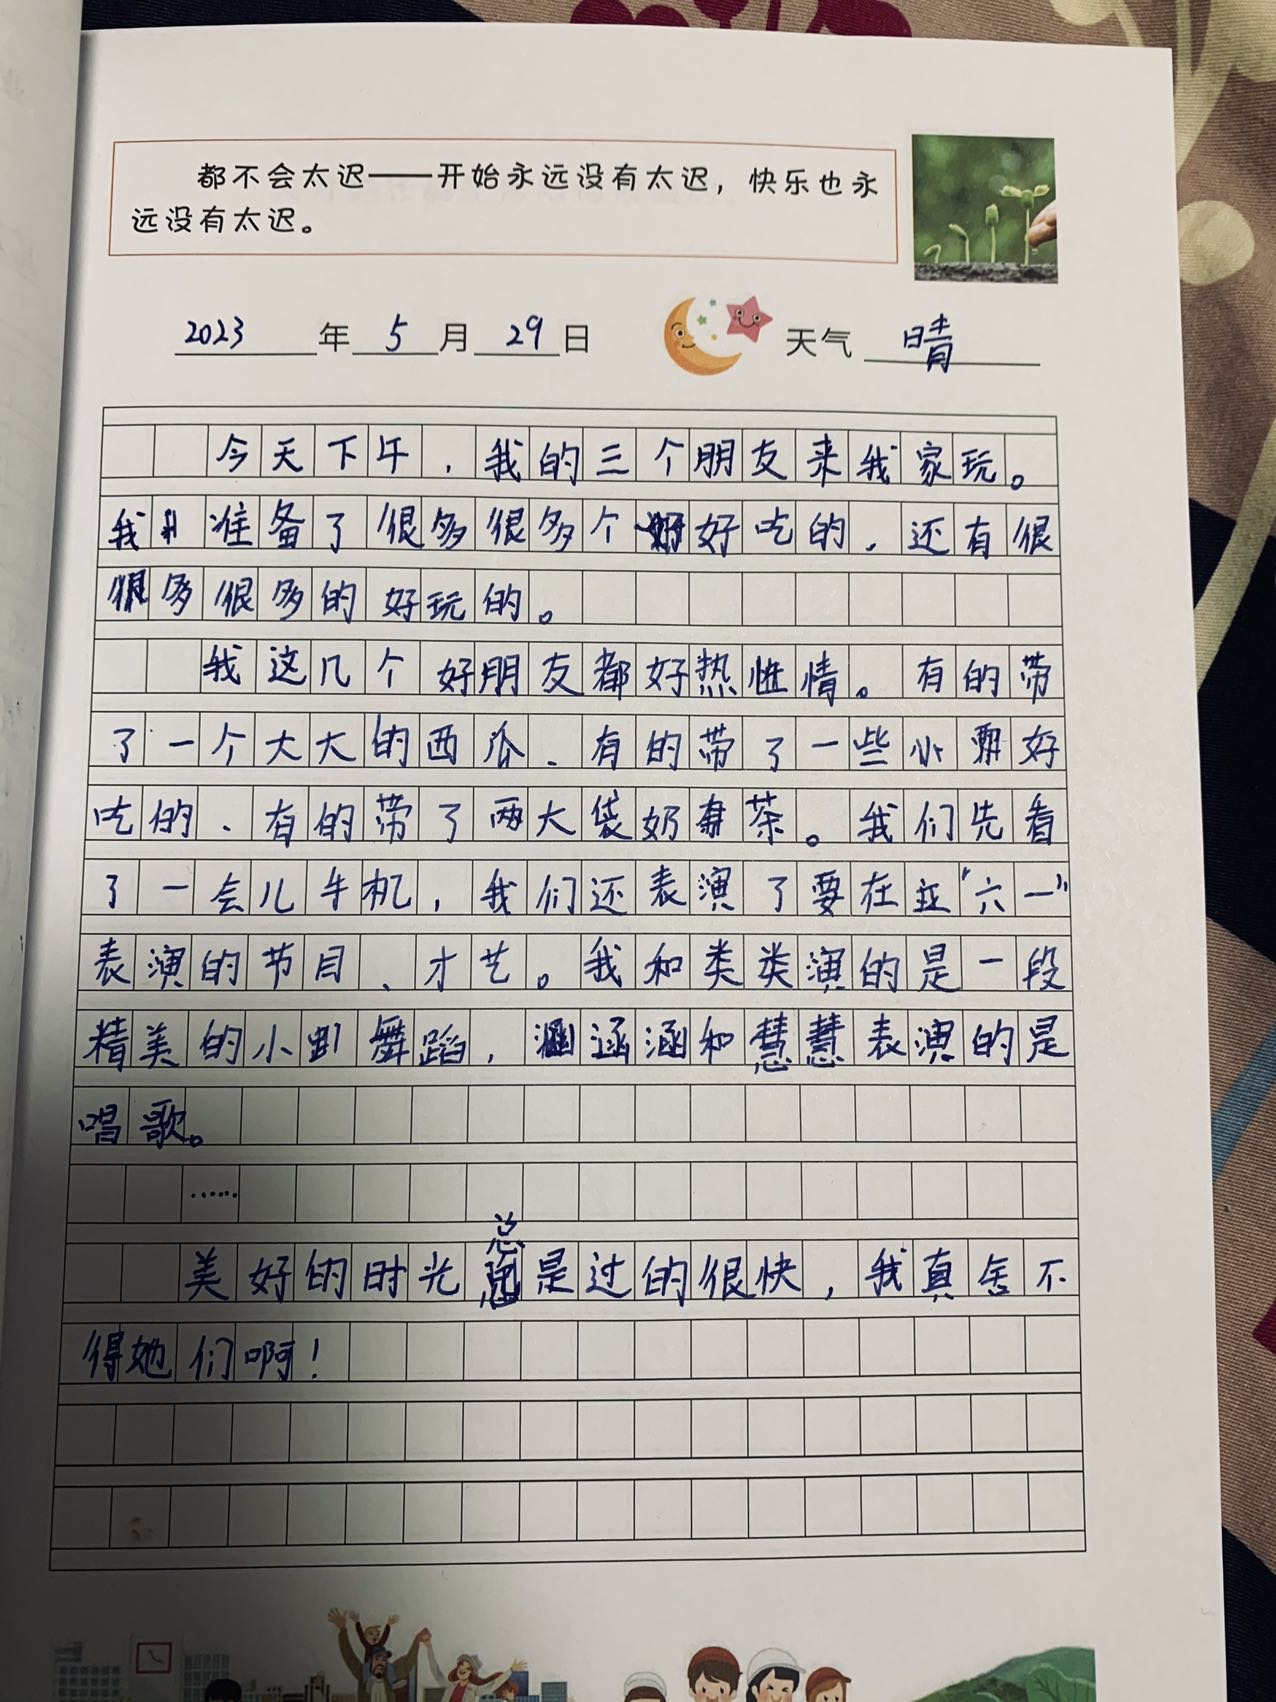 都不会太迟——开始永远没有太迟，快乐也永
远没有太迟。
2023年5月29日 天气 晴
今天下午，我的三个朋友来我家玩。
我准备了很多很多个好好吃的，还有很
很多很多的好玩的。
我这几个好朋友都好热性情。有的带
了一个大大的西瓜、有的带了一些小好
吃的、有的带了两大袋奶茶。我们先看
了一会儿手机，我们还表演了要在“六一”
表演的节目、才艺。我和类类演的是一段
精美的小舞蹈，涵涵和慧慧表演的是
唱歌。
……
美好的时光总是过的很快，我真舍不
得她们啊！